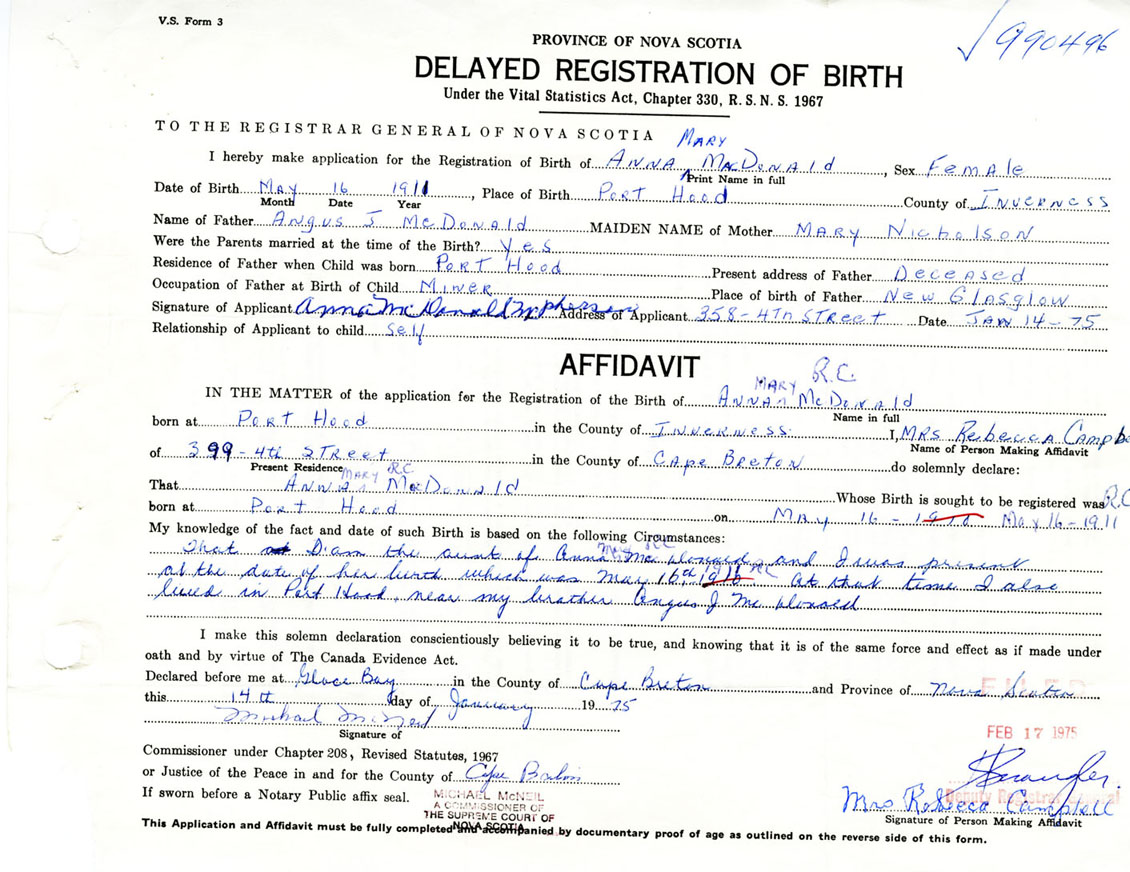 V.S. Form 3
√ 990496
PROVINCE OF NOVA SCOTIA
DELAYED REGISTRATION OF BIRTH
Under the Vital Statistics Act, Chapter 330, R. S. N. S. 1967
TO THE REGISTRAR GENERAL OF NOVA SCOTIA
MARY
I hereby make application for the Registration of Birth of ANNA MacDonald, Sex Female
Print Name in full
Date of Birth May 16 1911, Place of Birth Port Hood County of Inverness
Month Date Year
Name of Father Angus J McDonald MAIDEN NAME of Mother Mary Nicholson
Were the Parents married at the time of the Birth? Yes
Residence of Father when Child was born Port Hood Present address of Father Deceased
Occupation of Father at Birth of Child Miner Place of birth of Father New Glasglow
Signature of Applicant Anna McDonald Mcpherson Address of Applicant 358-4Th Street Date Jan 14-75
Relationship of Applicant to child Self
AFFIDAVIT
MARY R.C.
IN THE MATTER of the application for the Registration of the Birth of Anna McDonald
Name in full
born at Port Hood in the County of Inverness I, MRS Rebecca Campbe
Name of Person Making Affidavit
of 399-4th Street in the County of Cape Breton do solemnly declare:
Present Residence
MARY R.C.
That Anna MacDonald Whose Birth is sought to be registered was R.C
born at Port Hood on May 16-1910 May 16-1911
My knowledge of the fact and date of such Birth is based on the following Circumstances:
Mary R.C.
That I am the aunt of Anna Mc Donald and I was present
at the date of her birth which was May 16th R.C At that time I also
lived in Port Hood, near my brother Angus J. Mc Donald
I make this solemn declaration conscientiously believing it to be true, and knowing that it is of the same force and effect as if made under
oath and by virtue of The Canada Evidence Act.
Declared before me at Glace Bay in the County of Cape Breton and Province of Nova Scotia
FILED
this 14th day of January 1975
Michael McNeil
Signature of
FEB 17 1975
Commissioner under Chapter 208, Revised Statutes, 1967
or Justice of the Peace in and for the County of Cape Breton
If sworn before a Notary Public affix seal.
MICHAEL McNEIL
A COMMISSIONER OF
THE SUPREME COURT OF
NOVA SCOTIA
Deputy Registrar General
Mrs Rebeca Campbell
Signature of Person Making Affidavit
This Application and Affidavit must be fully completed and accompanied by documentary proof of age as outlined on the reverse side of this form.